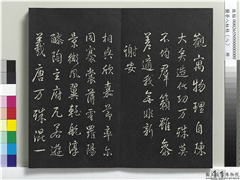 觀寓物理自陳
大矣造化功万殊莫
不均群籟雖參
差適我無非新
謝安
相與欣嘉節率尔
同褰裳薄雲羅陽
景微風翼輕航淳
醑陶玄府兀若遊
羲唐万殊混一